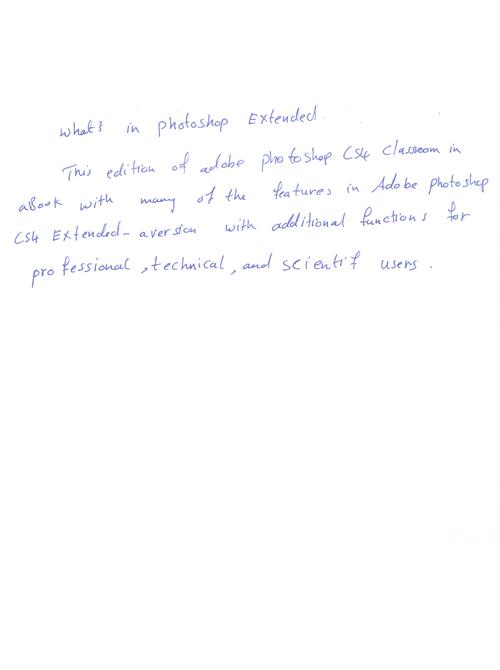 what's in photoshop Extended.
This edition of adobe photoshop CS4 Classroom in
aBook with many of the features in Adobe photoshop
CS4 Extended- aversion with additional functions for
professional , technical , and scientif users .